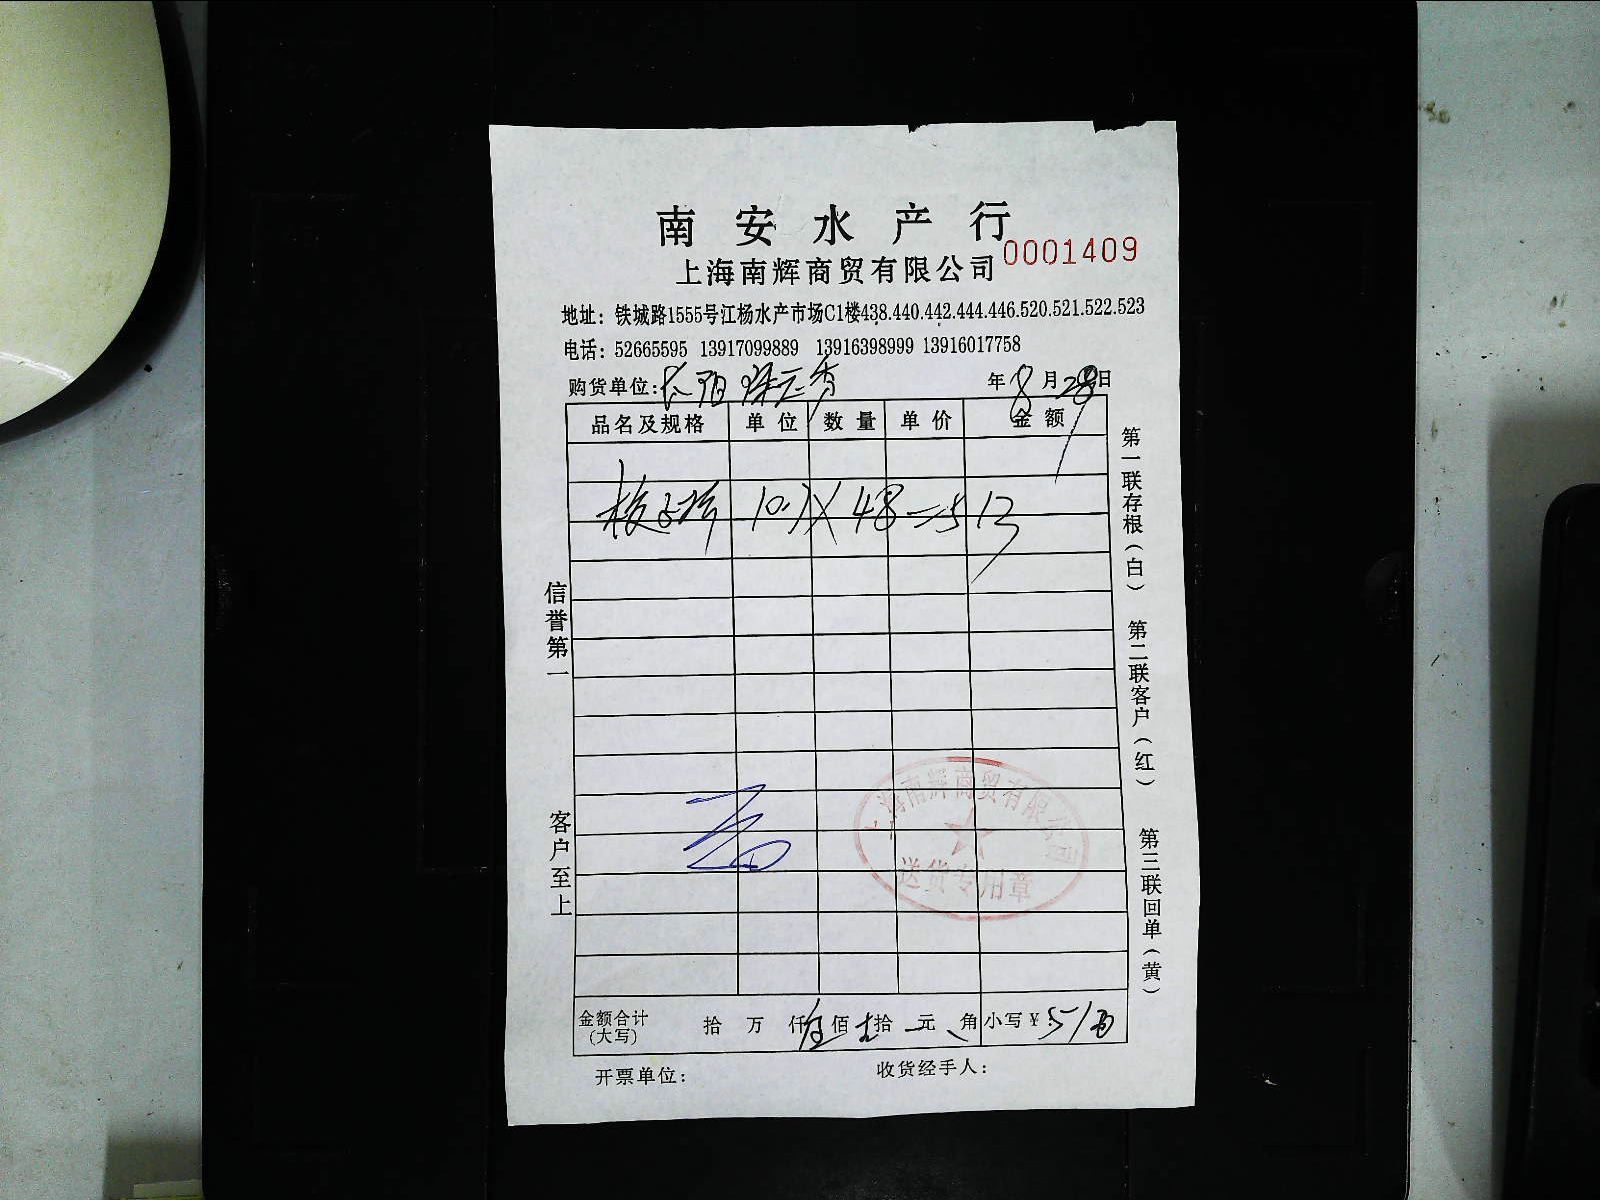 南安水产行
0001409
上海南辉商贸有限公司
地址：铁城路1555号江杨水产市场C1楼438.440.442.444.446.520.521.522.523
电话：52665595 13917099889 13916398999 13916017758
购货单位： 年8月28日
品名及规格 单位 数量 单价 金额
X 48 = 513
信誉第一
客户至上
第一联存根（白）
第二联客户（红）
第三联回单（黄）
上海南辉商贸有限公司
送货专用章
金额合计（大写） 拾 万 仟伍佰 拾 元 角 小写¥：
开票单位： 收货经手人：